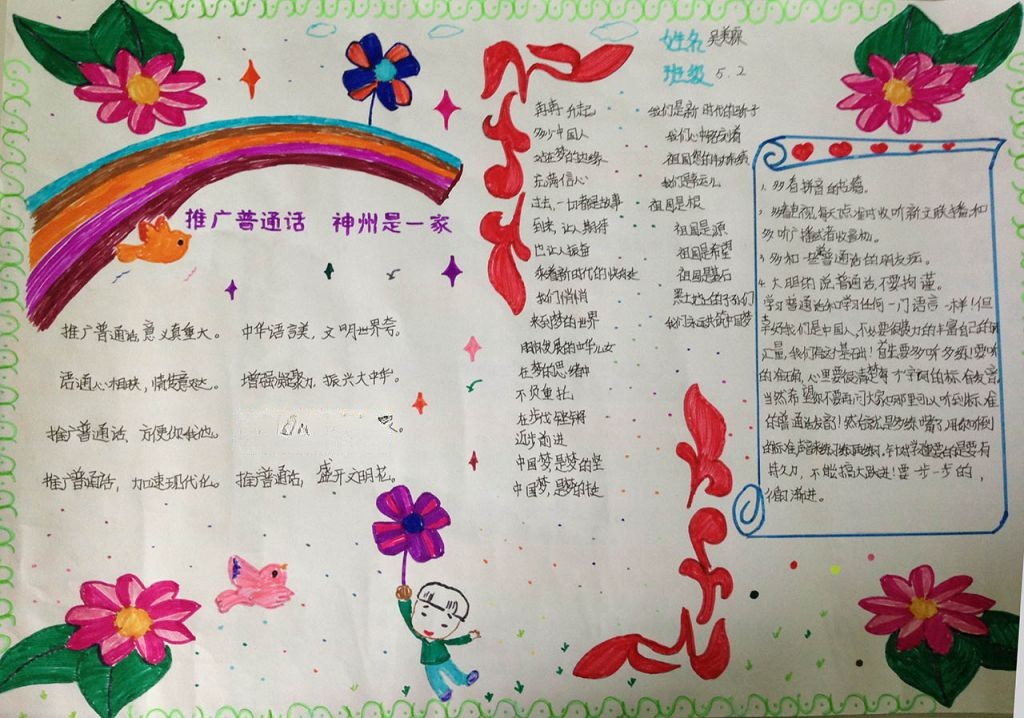 姓名
班级 5.2
推广普通话 神州是一家
推广普通话,意义真重大。 中华语言美,文明世界奇。
语通心相映,情发意达。 增强凝聚力,振兴大中华。
推广普通话,方便你我他。
推广普通话,加速现代化。 推广普通话,盛开文明花。
再再升起
多少中国人
站在梦的边缘
充满信心
过去,一切都是故事
到来,让人期待
也让人振奋
乘着新时代的快车
我们悄悄
来到梦的世界
的中华儿女
在梦的思绪中
不负重托
在步履铿锵
迈步前进
中国梦是梦的坚
中国梦,是梦的
我们是新时代的骄子
我们心中
祖国
我们是
祖国是根
祖国是源
祖国是希望
祖国是基石
黑土地上的子孙们
我们永远共筑中国梦
1、多看拼音的书籍。
2、多看电视,每天点准时收听新闻联播和
多听广播或者收音机。
3、多和一些普通话的朋友玩。
4、大胆的说普通话,不要拘谨。
学习普通话和学习任何一门语言一样!但
幸好我们是中国人,不必要很努力的丰富自己的词
汇量,我们有这个基础!首先要多听多练!要听
的准确,心里要很清楚每个字词的标准发音
当然希望你不要再问大家在哪里可以听到标准
的普通话发音!然后就是多练嘴了,用你听到
的标准声音来练习练再练,针对学习重要的是要有
持久力,不能搞大跃进!要一步一步的,
循渐进。